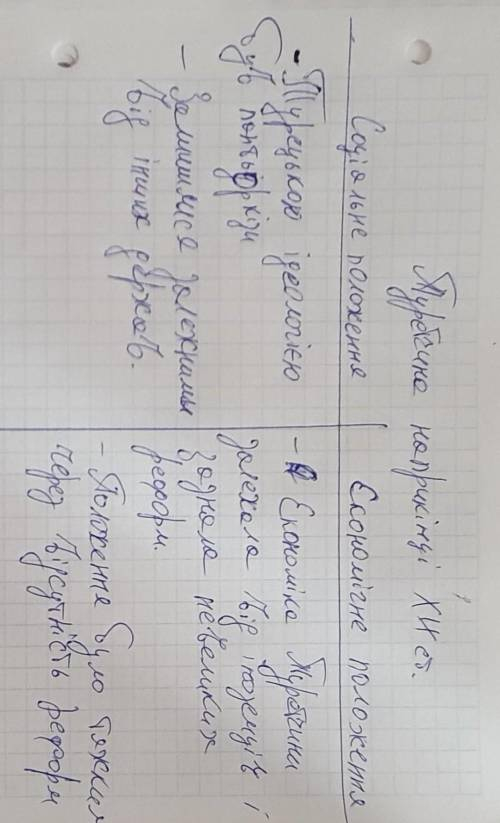 Туреччина наприкінці XIX ст.
Соціальне положення
Економічне положення
- Турецькою ідеологією
був пантюркізм
- Залишилися залежними
від інших держав.
- Економіка Туреччини
залежала від іноземців і
зазнала невеликих
реформ.
- Положення було тяжким
через відсутність реформ